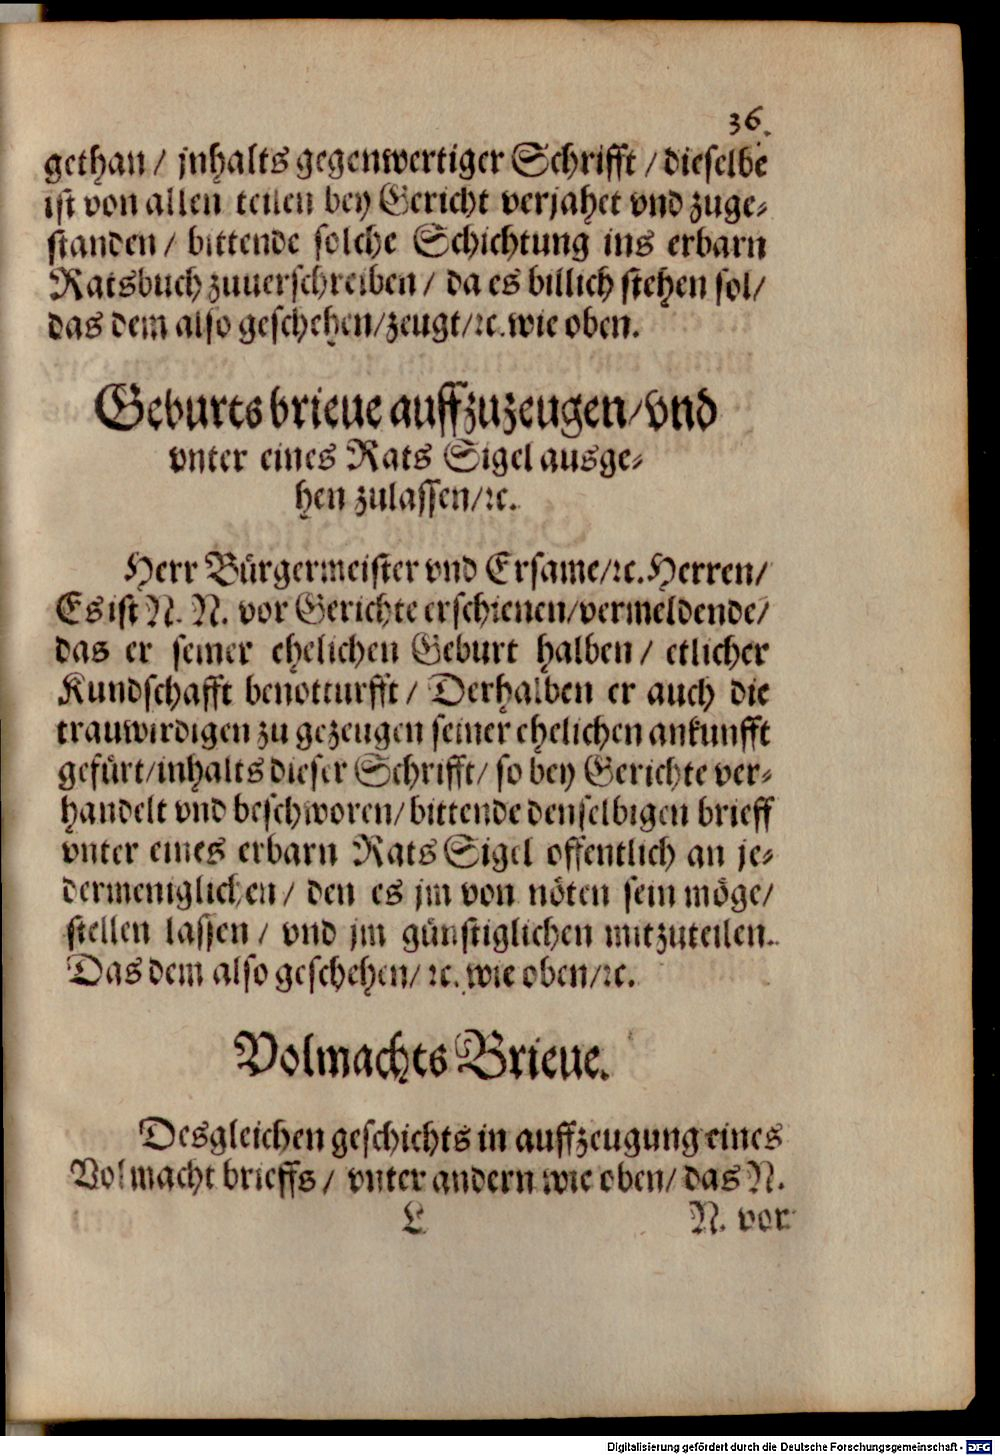 36.
gethan / jnhalts gegenwertiger Schrifft / dieselbe
ist von allen teilen bey Gericht verjahet vnd zuge-
standen / bittende solche Schichtung ins erbarn
Ratsbuch zuuerschreiben / da es billich stehen sol/
das dem also geschehen/zeugt/ꝛc. wie oben.
Geburts brieue auffzuzeugen/vnd
vnter eines Rats Sigel ausge-
hen zulassen/ꝛc.
Herr Bürgermeister vnd Ersame/ꝛc. Herren/
Es ist N. N. vor Gerichte erschienen/vermeldende/
das er seiner ehelichen Geburt halben / etlicher
Kundschafft benotturfft / Derhalben er auch die
trauwirdigen zu gezeugen seiner ehelichen ankunfft
gefürt/inhalts dieser Schrifft/ so bey Gerichte ver-
handelt vnd beschworen/bittende denselbigen brieff
vnter eines erbarn Rats Sigel offentlich an je-
dermeniglichen / den es jm von nöten sein möge/
stellen lassen / vnd jm günstiglichen mitzuteilen.
Das dem also geschehen/ ꝛc. wie oben/ꝛc.
Volmachts Brieue.
Desgleichen geschichts in auffzeugung eines
Volmacht brieffs / vnter andern wie oben/ das N.
L N. vor
Digitalisierung gefördert durch die Deutsche Forschungsgemeinschaft - DFG